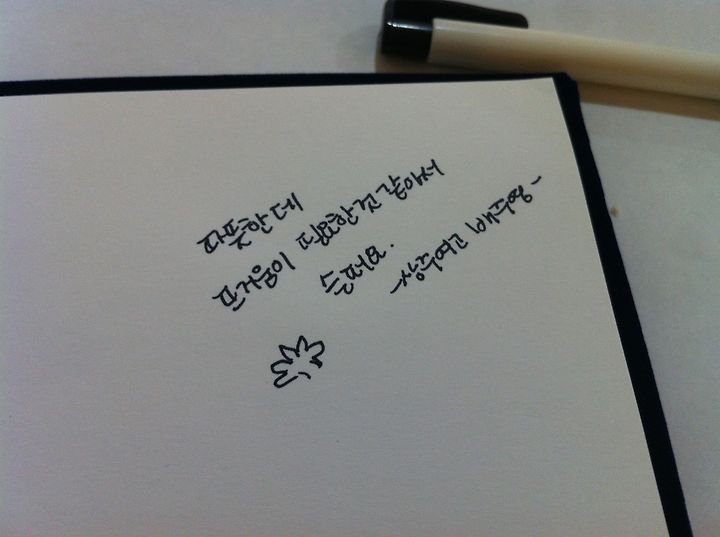 따뜻한데
뜨거움이 필요한것 같아서
슬퍼요.
~상주여고 배주영~